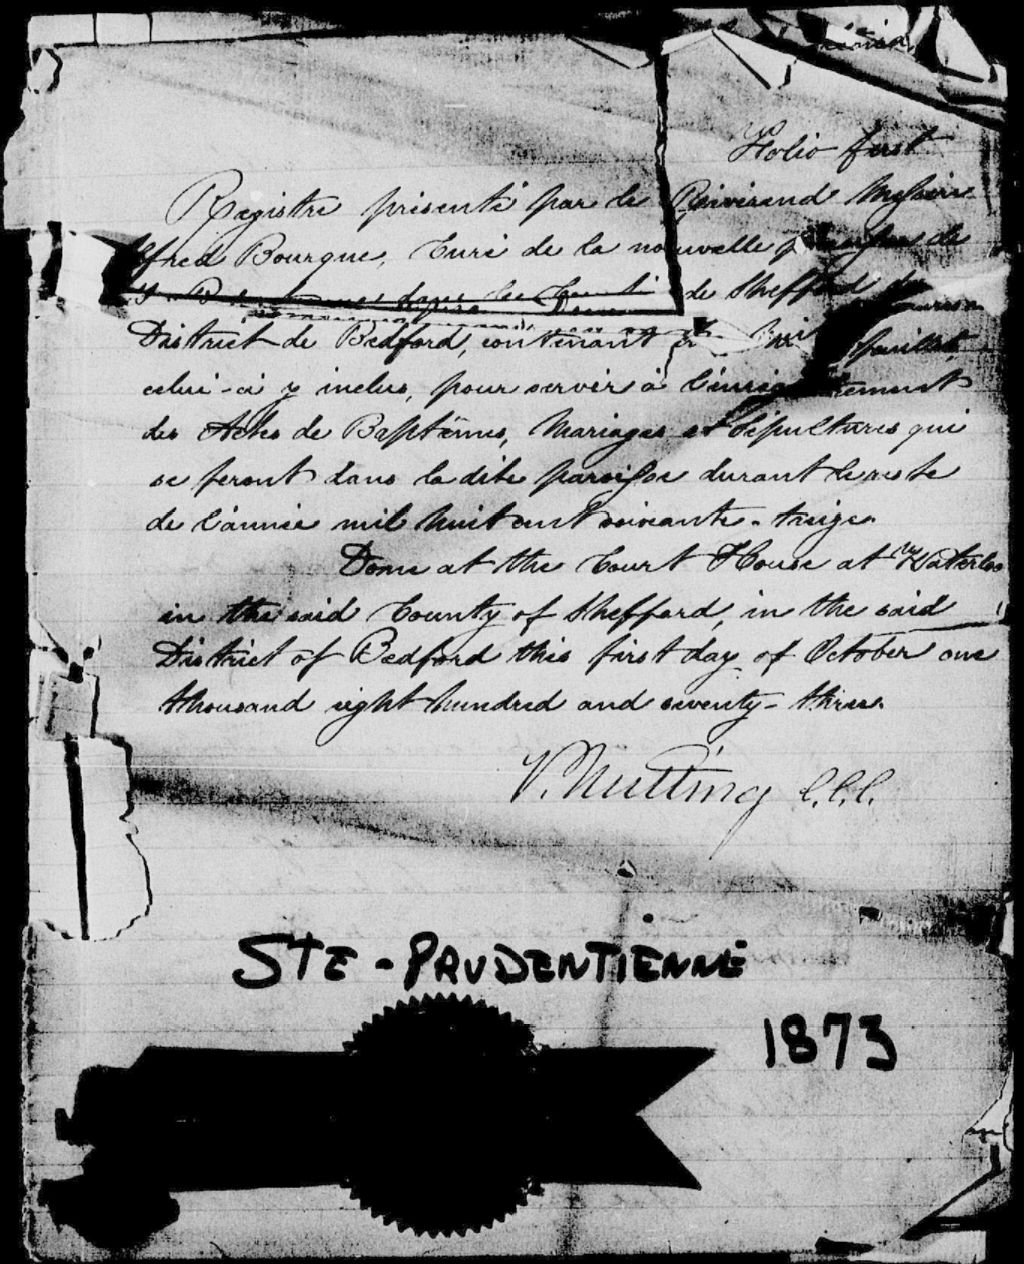 Folio first
Registre présenté par le Révérend Messire
Alfred Bourque, Curé de la nouvelle paroisse de
de Shefford
District de Bedford, contenant feuillets,
celui-ci y inclus, pour servir à l'enregistrement
des Actes de Baptêmes, Mariages et Sépultures qui
se feront dans la dite paroisse durant le reste
de l'année mil huit cent soixante-treize.
Done at the Court House at Waterloo
in the said County of Shefford, in the said
District of Bedford this first day of October one
thousand eight hundred and seventy-three.
V. Nutting C.C.C.
STE-PRUDENTIENNE
1873